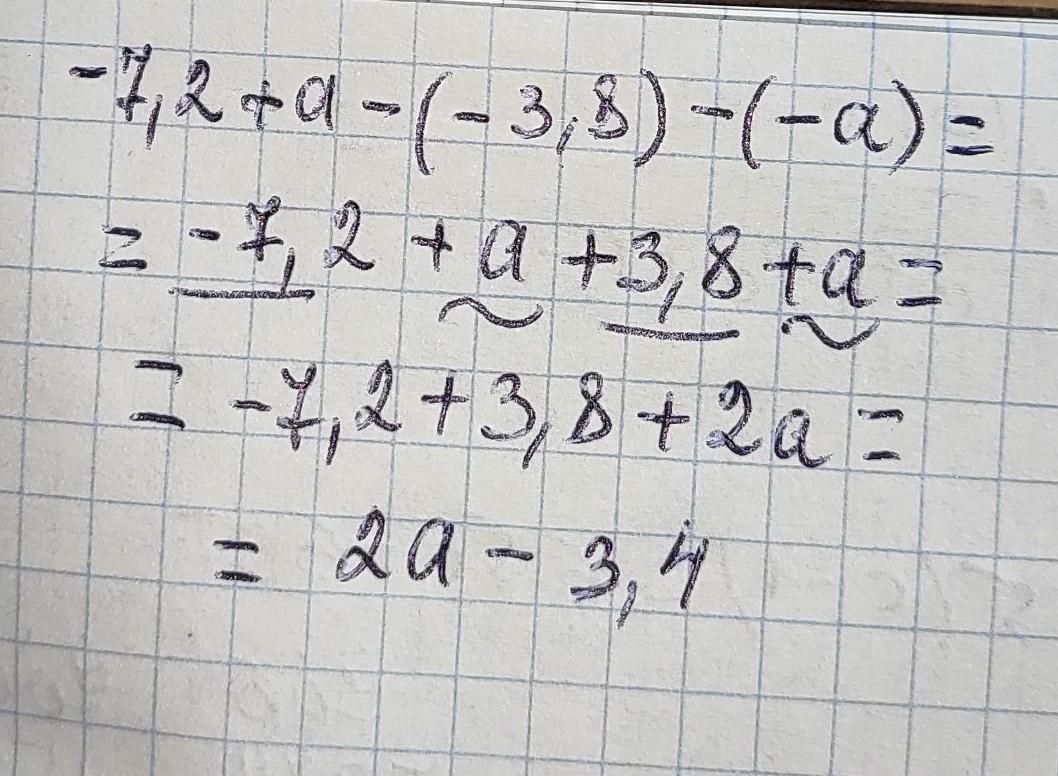 -7,2+a-(-3,8)-(-a)=
=-7,2+a+3,8+a=
=-7,2+3,8+2a=
=2a-3,4